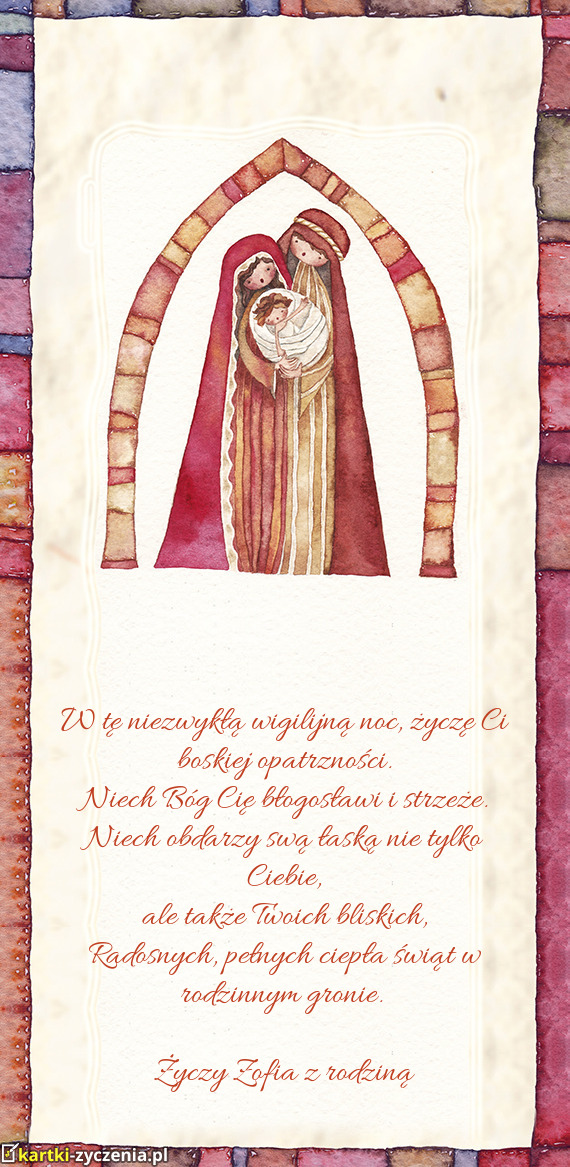 W tę niezwykłą wigilijną noc, życzę Ci
boskiej opatrzności.
Niech Bóg Cię błogosławi i strzeże.
Niech obdarzy swą łaską nie tylko
Ciebie,
ale także Twoich bliskich,
Radosnych, pełnych ciepła świąt w
rodzinnym gronie.
Życzy Zofia z rodziną
kartki-zyczenia.pl